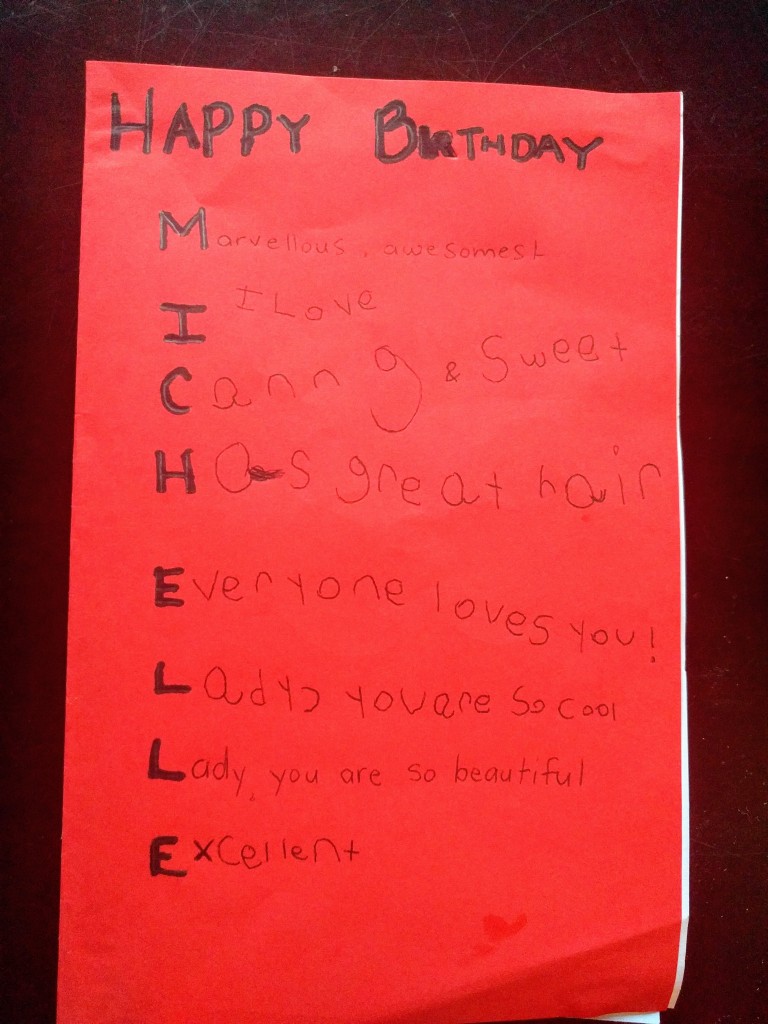 HAPPY BIRTHDAY
Marvellous, awesomest
I I Love
Canng & Sweet
Has great hair
Everyone loves you!
Lady, you are so cool
Lady, you are so beautiful
Excellent